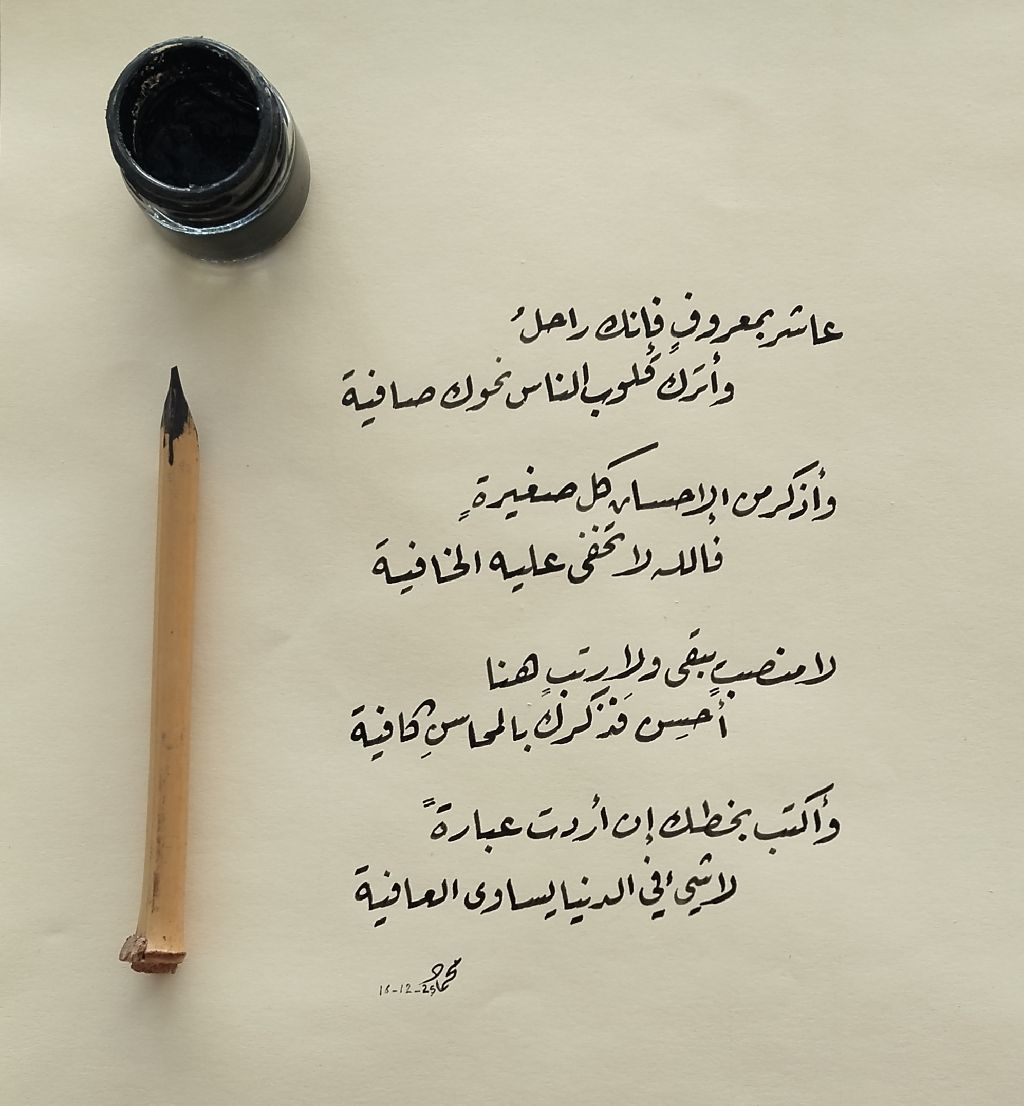 عاشر بمعروفٍ فإنك راحلُ
وأترك قلوب الناس نحوك صافية
وأذكر من الإحسان كل صغيرةٍ
فالله لا تخفى عليه الخافية
لا منصبٍ يبقى ولا رتبٍ هنا
أحسِن فَذكرك بالمحاسنِ كافية
وأكتب بخطك إن أردت عبارةً
لا شيء في الدنيا يساوى العافية
محمود